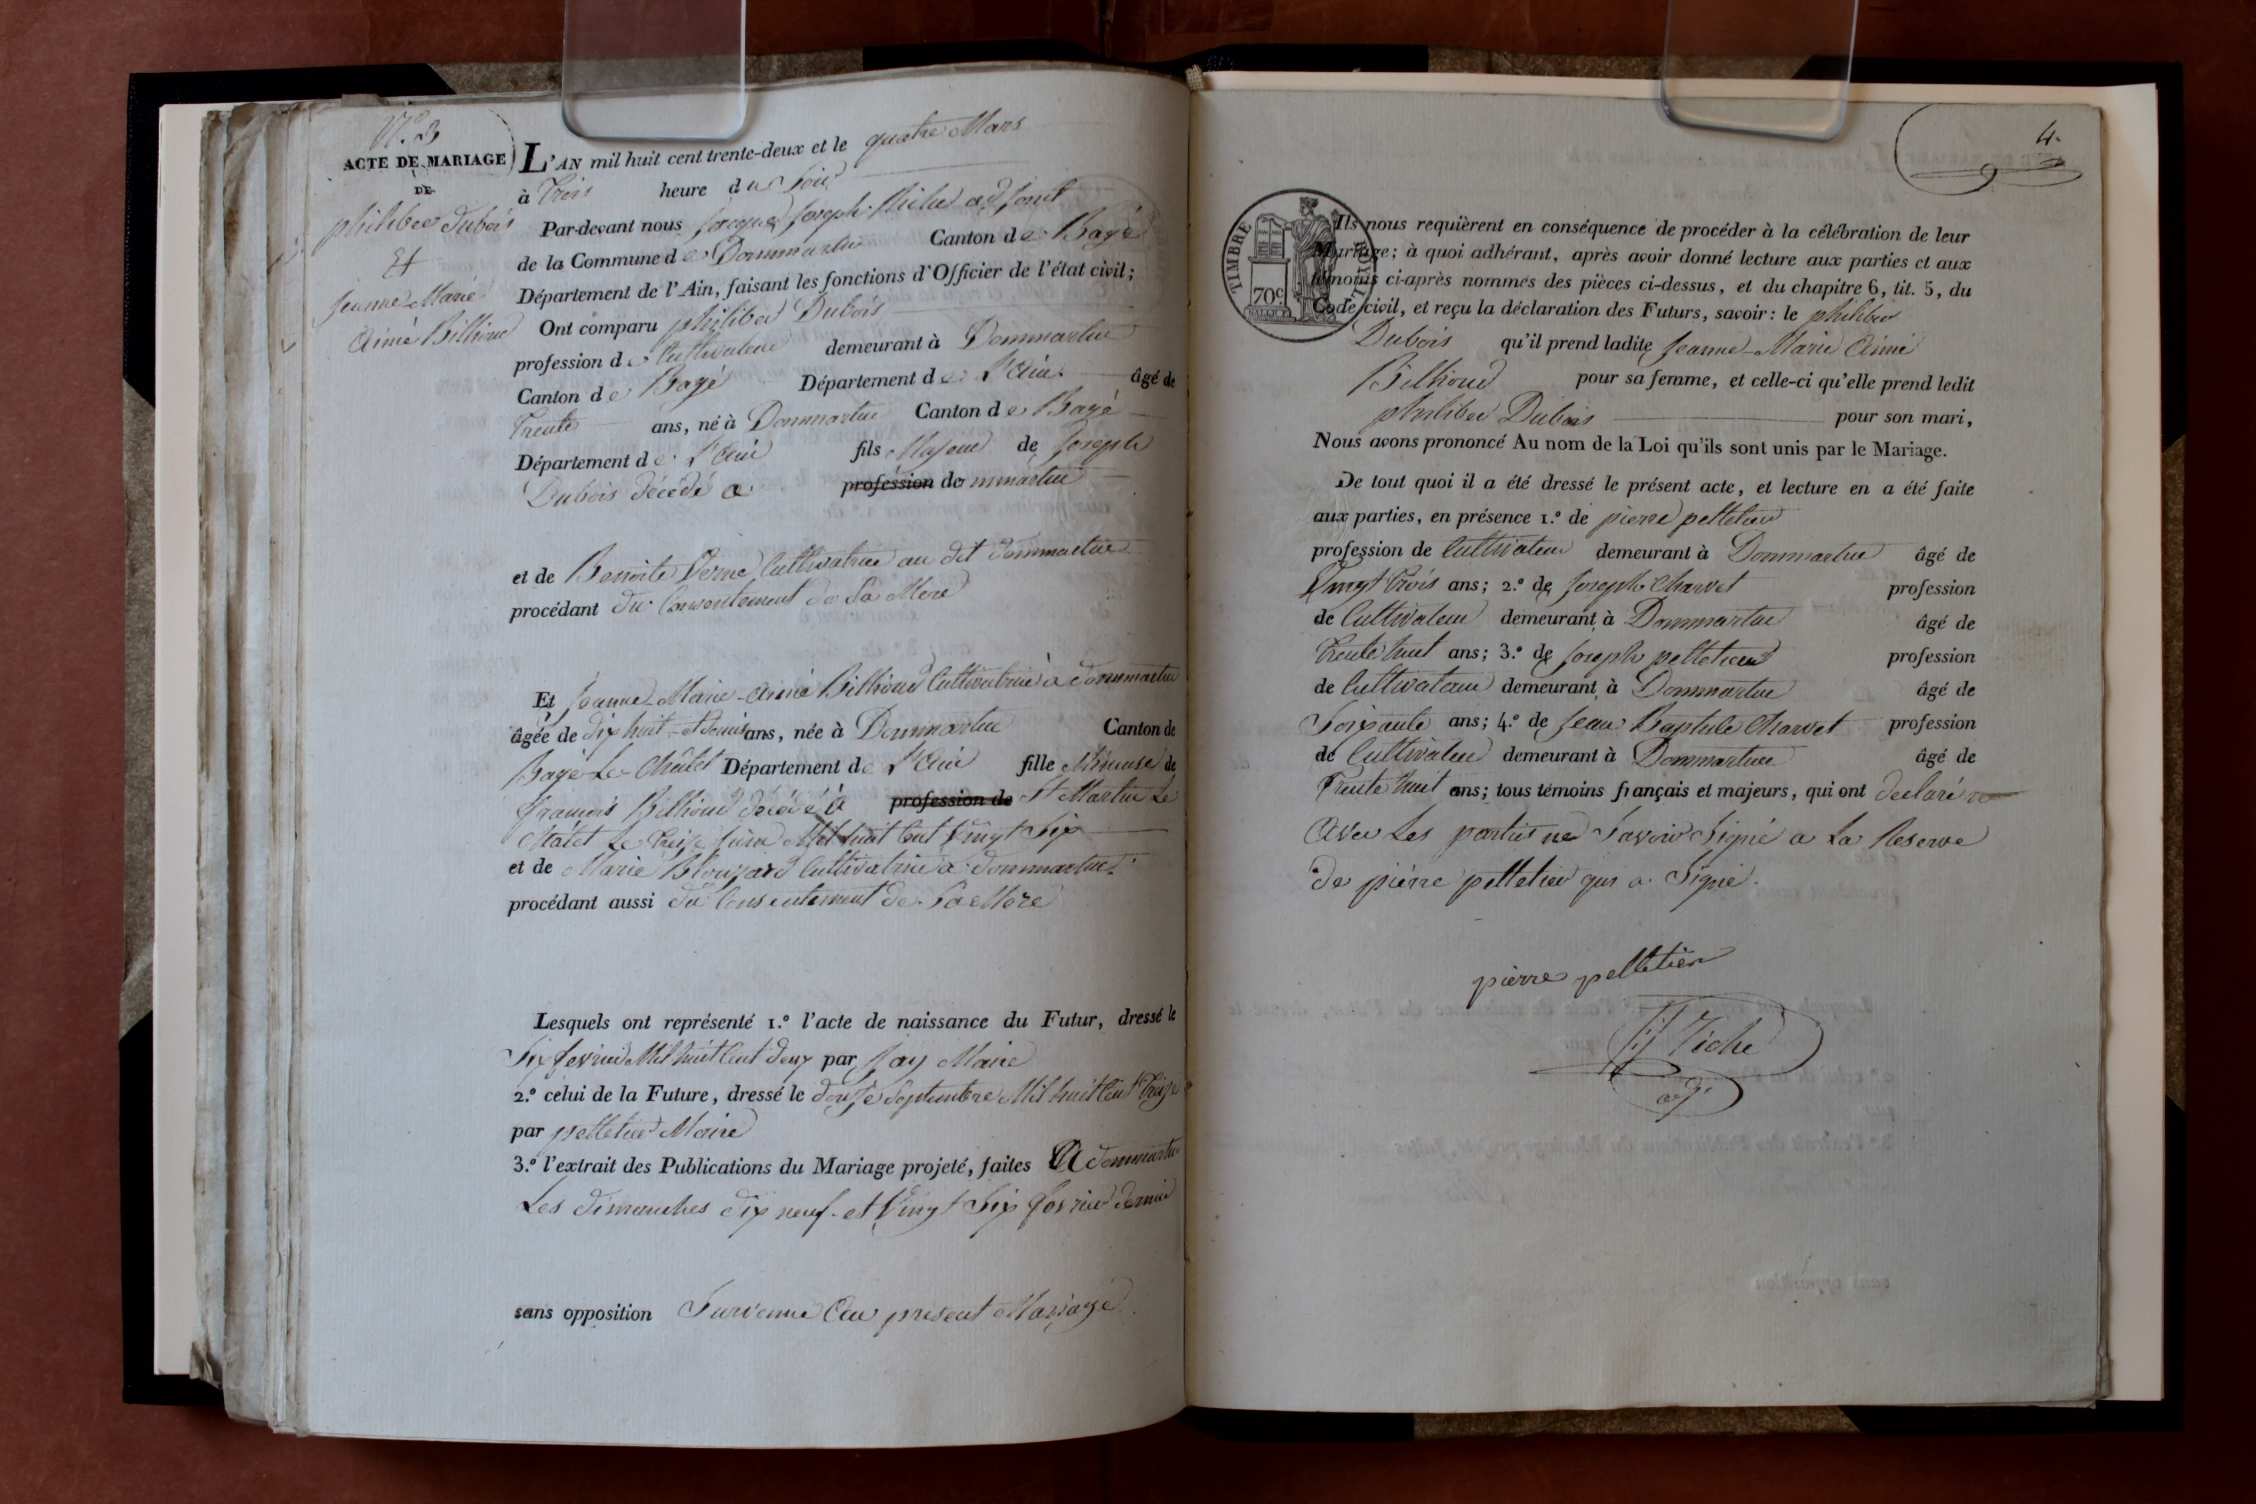 N.º 3
ACTE DE MARIAGE
DE
philiber Dubois
Et
Jeanne-Marie
Aimé Billioud
L'AN mil huit cent trente-deux et le quatre Mars
à Trois heure du Soir
Par-devant nous Jacques Joseph Tiche adjoint
de la Commune de Dommartin Canton de Bagé
Département de l'Ain, faisant les fonctions d'Officier de l'état civil;
Ont comparu philiber Dubois
profession de Cultivateur demeurant à Dommartin
Canton de Bagé Département de l'Ain âgé de
Trente ans, né à Dommartin Canton de Bagé
Département de l'Ain fils Majeur de Joseph
Dubois décédé a profession do mmartin
et de Benoite Verne Cultivatrice au dit dommartin
procédant du Consentement de Sa Mere
Et Jeanne-Marie-Aimé Billioud Cultivatrice à dommartin
âgée de dix huit et demi ans, née à Dommartin Canton de
Bagé-Le-Châtel Département de l'Ain fille Mineure de
francois Billioud décédé à profession de St Martin Le
Châtel Le treize juin Mil huit Cent Vingt Six
et de Marie Blouzard Cultivatrice à dommartin
procédant aussi du Consentement de Sa Mere
Lesquels ont représenté 1.º l'acte de naissance du Futur, dressé le
Six fevrier Mil huit Cent deux par Jay Maire
2.º celui de la Future, dressé le douze Septembre Mil huit Cent Treize
par pelletier Maire
3.º l'extrait des Publications du Mariage projeté, faites A dommartin
Les dimanches dix neuf et Vingt Six fevrier dernier
sans opposition Survenue Au present Mariage
4.
TIMBRE ROYAL
70c
Ils nous requièrent en conséquence de procéder à la célébration de leur
Mariage; à quoi adhérant, après avoir donné lecture aux parties et aux
témoins ci-après nommés des pièces ci-dessus, et du chapitre 6, tit. 5, du
Code civil, et reçu la déclaration des Futurs, savoir: le philiber
Dubois qu'il prend ladite Jeanne-Marie Aimé
Billioud pour sa femme, et celle-ci qu'elle prend ledit
philiber Dubois pour son mari,
Nous avons prononcé Au nom de la Loi qu'ils sont unis par le Mariage.
De tout quoi il a été dressé le présent acte, et lecture en a été faite
aux parties, en présence 1.º de pierre pelletier
profession de Cultivateur demeurant à Dommartin âgé de
Vingt trois ans; 2.º de Joseph Charvet profession
de Cultivateur demeurant à Dommartin âgé de
Trente huit ans; 3.º de Joseph pelletier profession
de Cultivateur demeurant à Dommartin âgé de
Soixante ans; 4.º de Jean Baptiste Charvet profession
de Cultivateur demeurant à Dommartin âgé de
Trente huit ans; tous témoins français et majeurs, qui ont declaré
Avec Les parties ne Savoir Signé a La Reserve
de pierre pelletier qui a Signé.
pierre pelletier
JJ Tiche
adj.